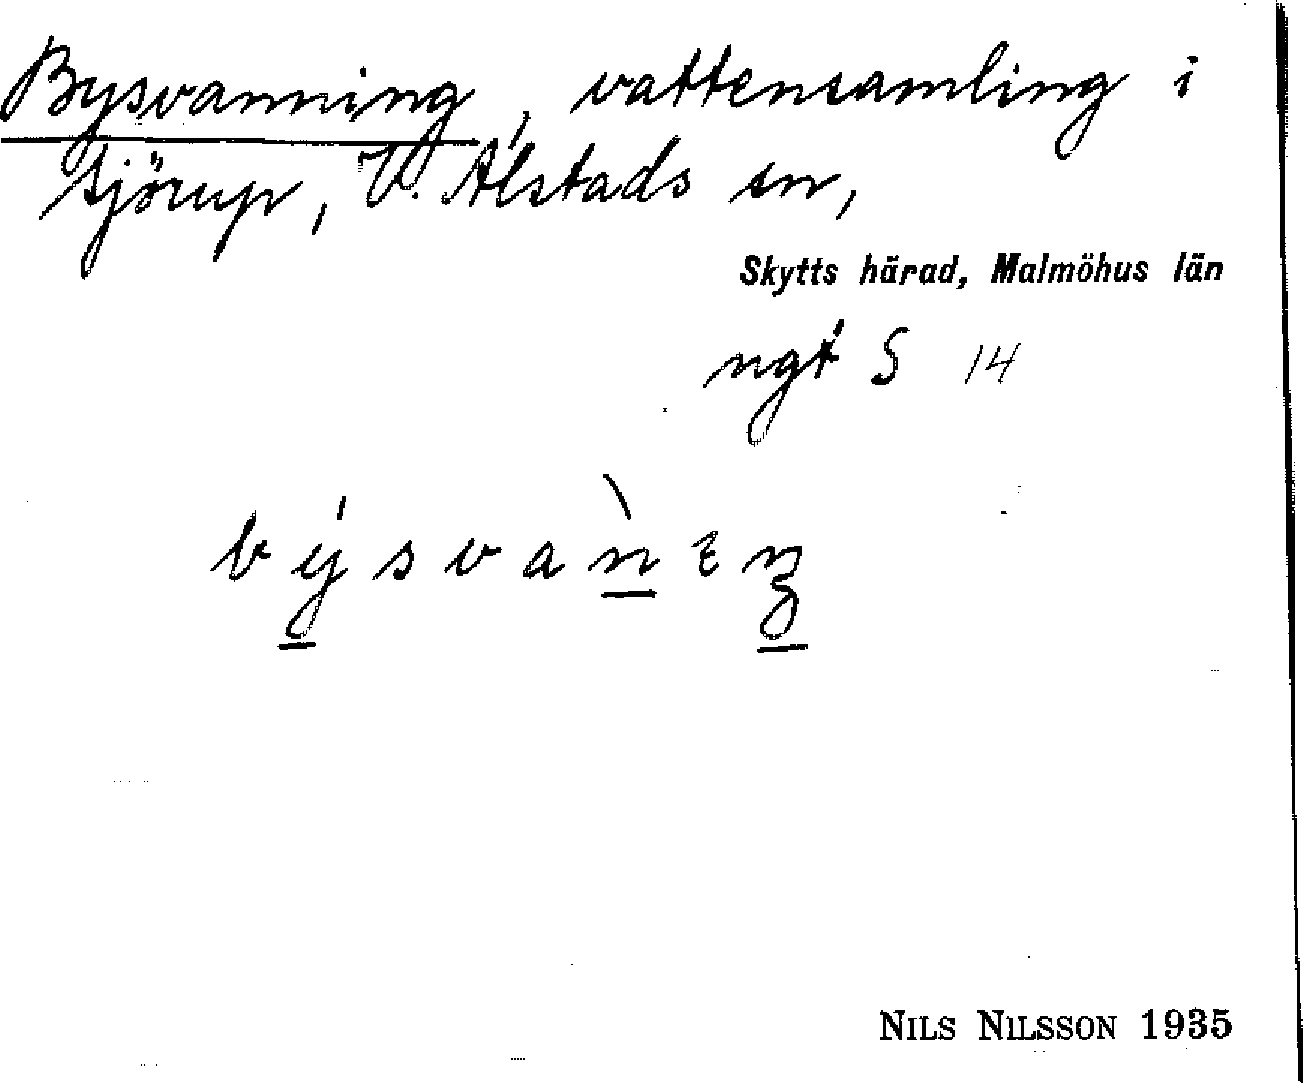 Bysvanning, vattensamling i
Sjörup, V. Alstads sn,
Skytts härad, Malmöhus län
ngt S 14
NILS NILSSON 1935